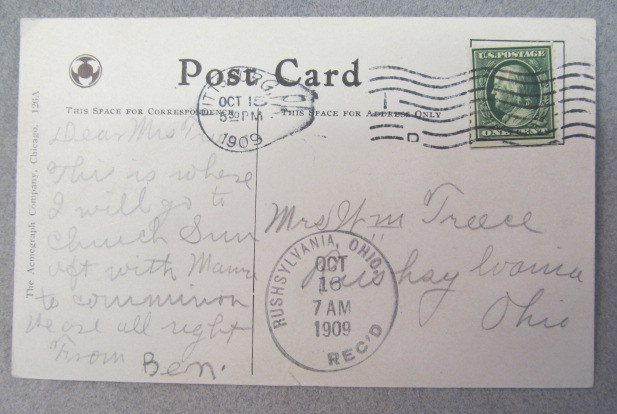 Post Card
THIS SPACE FOR CORRESPONDENCE
THIS SPACE FOR ADDRESS ONLY
U.S. POSTAGE
ONE CENT
OCT 15
5 30 PM
1909
D
The Acmegraph Company, Chicago. 120A
Dear Mrs
This is where
I will go to
church Sun
aft with
to communion
We are all right
From Ben.
Mrs Wm Treece
Ohio
RUSHSYLVANIA, OHIO.
OCT
16
7 AM
1909
REC'D